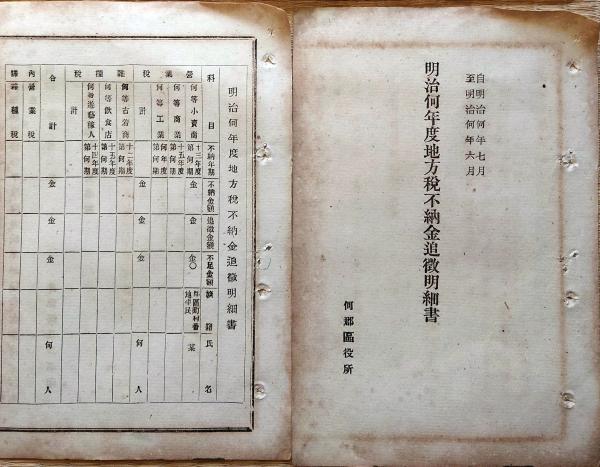 自明治何年七月
至明治何年六月
明治何年度地方税不納金追徴明細書
何郡區役所
明治何年度地方税不納金追徴明細書
科目
不納年期
不納金額
追徴金額
不足金額
族籍
氏名
營業税
何等小賣商
十三年度
第何期
金
金
金〇
郡區町村番地士民
某
何等商業
十五年度
第何期
何等工業
何年度
第何期
計
金
金
金
何人
雜種税
何等古着商
十二年度
第何期
何等飲食店
十五年度
第何期
何等遊藝稼人
十四年度
第何期
計
合計
金
金
金
何人
内營業税
雜種税